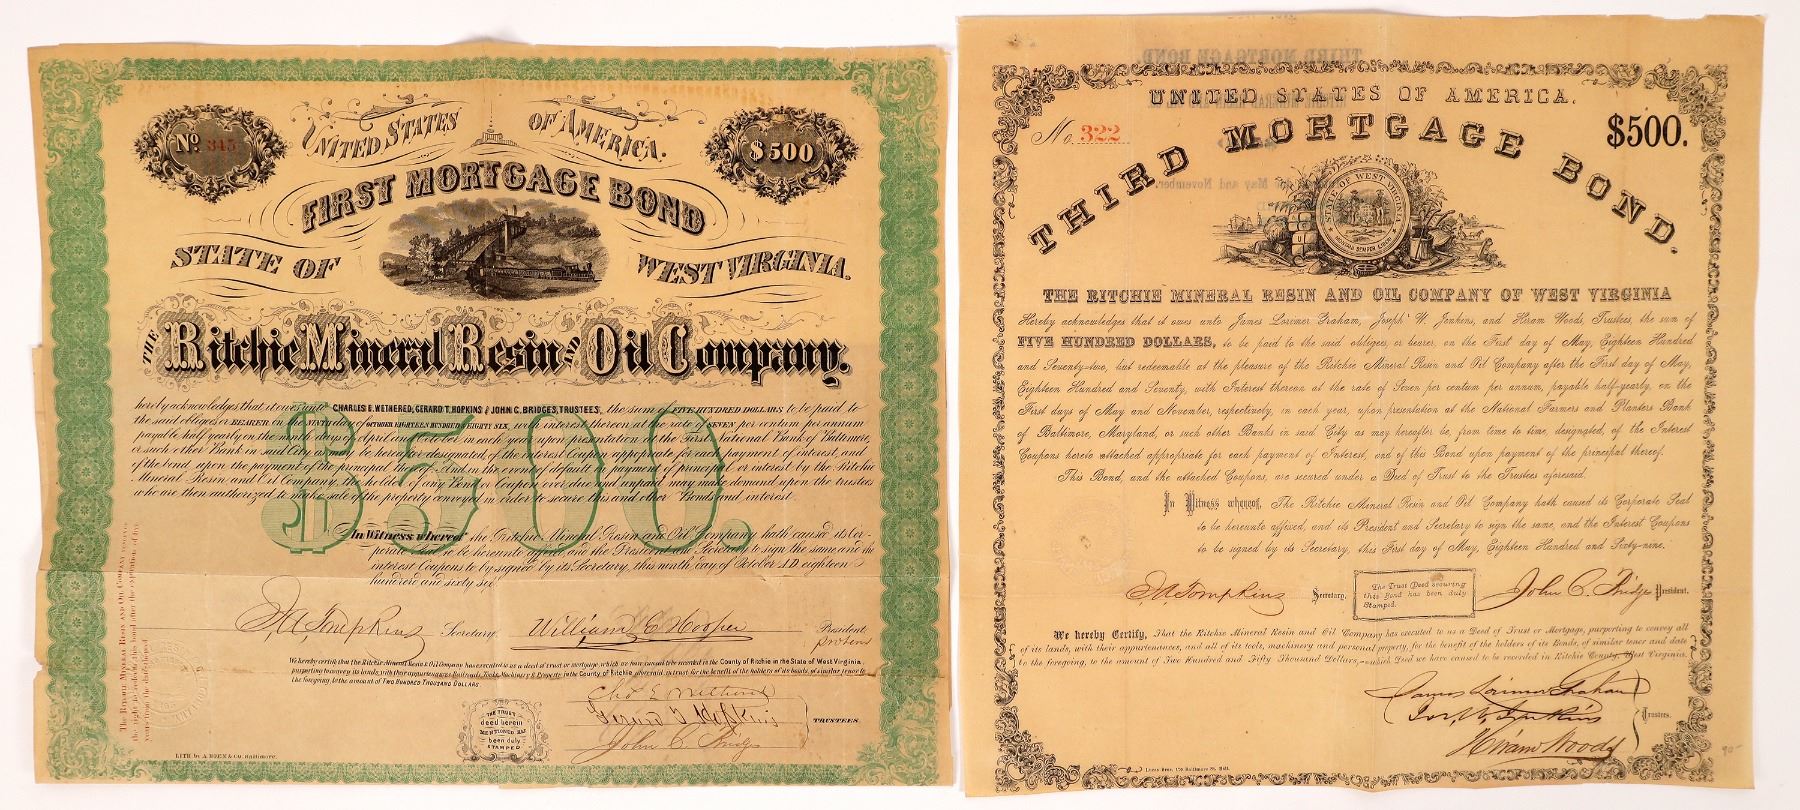 No 345
UNITED STATES OF AMERICA.
$500
FIRST MORTGAGE BOND
STATE OF WEST VIRGINIA.
THE Ritchie Mineral Resin AND Oil Company.
hereby acknowledges that it owes unto CHARLES E. WETHERED, GERARD T. HOPKINS & JOHN C. BRIDGES, TRUSTEES, the sum of FIVE HUNDRED DOLLARS to be paid to
the said obligees or BEARER, on the NINTH day of OCTOBER EIGHTEEN HUNDRED & EIGHTY SIX, with interest thereon at the rate of SEVEN per centum per annum
payable half yearly on the ninth days of April and October in each year upon presentation at the First National Bank of Baltimore,
or such other Bank in said City as may be hereafter designated, of the Interest Coupons appropriate for each payment of interest, and
of the bond upon the payment of the principal thereof. And in the event of default in payment of principal or interest by the Ritchie
Mineral Resin and Oil Company, the holder of any Bond or Coupon over due and unpaid may make demand upon the trustees
who are then authorized to make sale of the property conveyed in order to secure this and other Bonds and interest.
$500.
In Witness whereof the Ritchie Mineral Resin and Oil Company hath caused its Cor-
porate Seal to be hereunto affixed, and the President and Secretary to sign the same, and the
interest Coupons to be signed by its Secretary, this ninth day of October A.D. eighteen
hundred and sixty six
J. A. Tompkins Secretary. William C. Hooper President
pro tem
We hereby certify that the Ritchie Mineral Resin & Oil Company has executed to us a deed of trust or mortgage, which we have caused to be recorded in the County of Ritchie in the State of West Virginia,
purporting to convey its lands, with their appurtenances Railroads, Tools, Machinery & Property in the County of Ritchie aforesaid, in trust for the benefit of the holders of its bonds, of similar tenor to
the foregoing, to the amount of TWO HUNDRED THOUSAND DOLLARS.
THE TRUST
deed herein
MENTIONED HAS
been duly
STAMPED
Chas E Wethered
Gerard T Hopkins
John C. Bridges
TRUSTEES.
LITH by A. HOEN & CO. Baltimore.
The Ritchie Mineral Resin and Oil Company reserves
the right to redeem this bond after the expiration of five
years from the date thereof
UNITED STATES OF AMERICA.
No. 322
$500.
THIRD MORTGAGE BOND.
STATE OF WEST VIRGINIA
MONTANI SEMPER LIBERI
THE RITCHIE MINERAL RESIN AND OIL COMPANY OF WEST VIRGINIA
Hereby acknowledges that it owes unto James Lorimer Graham, Joseph W. Jenkins, and Hiram Woods, Trustees, the sum of
FIVE HUNDRED DOLLARS, to be paid to the said obligees or bearer, on the First day of May, Eighteen Hundred
and Seventy-two, but redeemable at the pleasure of the Ritchie Mineral Resin and Oil Company after the First day of May,
Eighteen Hundred and Seventy, with Interest thereon at the rate of Seven per centum per annum, payable half-yearly, on the
First days of May and November, respectively, in each year, upon presentation at the National Farmers and Planters Bank
of Baltimore, Maryland, or such other Banks in said City as may hereafter be, from time to time, designated, of the Interest
Coupons hereto attached appropriate for each payment of Interest, and of this Bond upon payment of the principal thereof.
This Bond, and the attached Coupons, are secured under a Deed of Trust to the Trustees aforesaid.
In Witness whereof, The Ritchie Mineral Resin and Oil Company hath caused its Corporate Seal
to be hereunto affixed, and its President and Secretary to sign the same, and the Interest Coupons
to be signed by its Secretary, this First day of May, Eighteen Hundred and Sixty-nine.
J. A. Tompkins Secretary.
The Trust Deed securing
this Bond has been duly
Stamped.
John C. Bridges President.
We hereby Certify, That the Ritchie Mineral Resin and Oil Company has executed to us a Deed of Trust or Mortgage, purporting to convey all
of its lands, with their appurtenances, and all of its tools, machinery and personal property, for the benefit of the holders of its Bonds, of similar tenor and date
to the foregoing, to the amount of Two Hundred and Fifty Thousand Dollars,—which Deed we have caused to be recorded in Ritchie County, West Virginia.
James Lorimer Graham
Jos. W. Jenkins
Hiram Woods
Trustees.
Lucas Bros. 170 Baltimore St. Balt.
90-